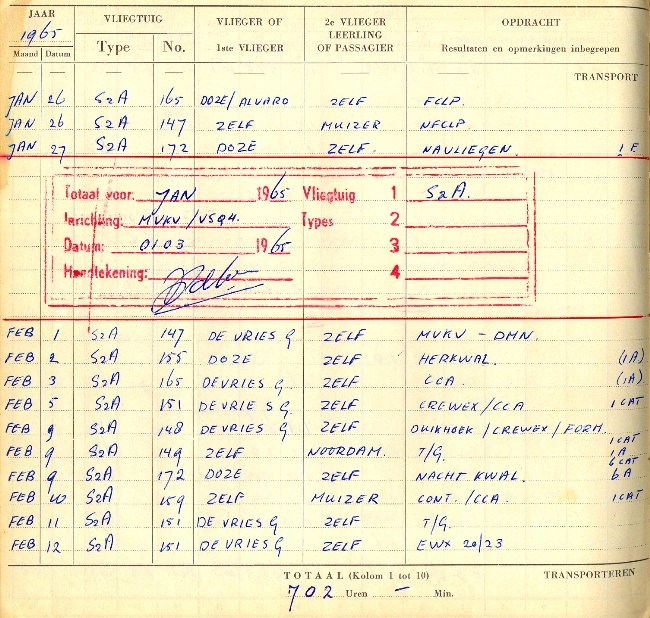 JAAR VLIEGTUIG VLIEGER OF 2e VLIEGER OPDRACHT
1965 LEERLING
Type No. 1ste VLIEGER OF PASSAGIER Resultaten en opmerkingen inbegrepen
Maand Datum
TRANSPORT
JAN 26 S2A 165 DOZE/ALVARO ZELF FCLP.
JAN 26 S2A 147 ZELF MUIZER NFCLP.
JAN 27 S2A 172 DOZE ZELF. NAVLIEGEN. 1 F.
Totaal voor: JAN 1965 Vliegtuig 1 S2A.
Inrichting: MVKV/VSQ4. Types 2
Datum: 01 03 1965 3
Handtekening: 4
FEB 1 S2A 147 DE VRIES G ZELF MVKV - DHN.
FEB 2 S2A 155 DOZE ZELF HERKWAL. (1A)
FEB 3 S2A 165 DE VRIES G. ZELF CCA. (1A)
FEB 5 S2A 151 DE VRIES G. ZELF CREWEX/CCA 1 CAT
FEB 9 S2A 148 DE VRIES G. ZELF DUIKHOEK/CREWEX/FORM. 1 CAT
FEB 9 S2A 149 ZELF NOORDAM. T/G. 1A
6 CAT
FEB 9 S2A 172 DOZE ZELF NACHT KWAL. 6 A
FEB 10 S2A 159 ZELF MUIZER CONT./CCA. 1 CAT
FEB 11 S2A 151 DE VRIES G ZELF T/G.
FEB 12 S2A 151 DE VRIES G ZELF EWX 20/23
TOTAAL (Kolom 1 tot 10) TRANSPORTEREN
702 Uren - Min.